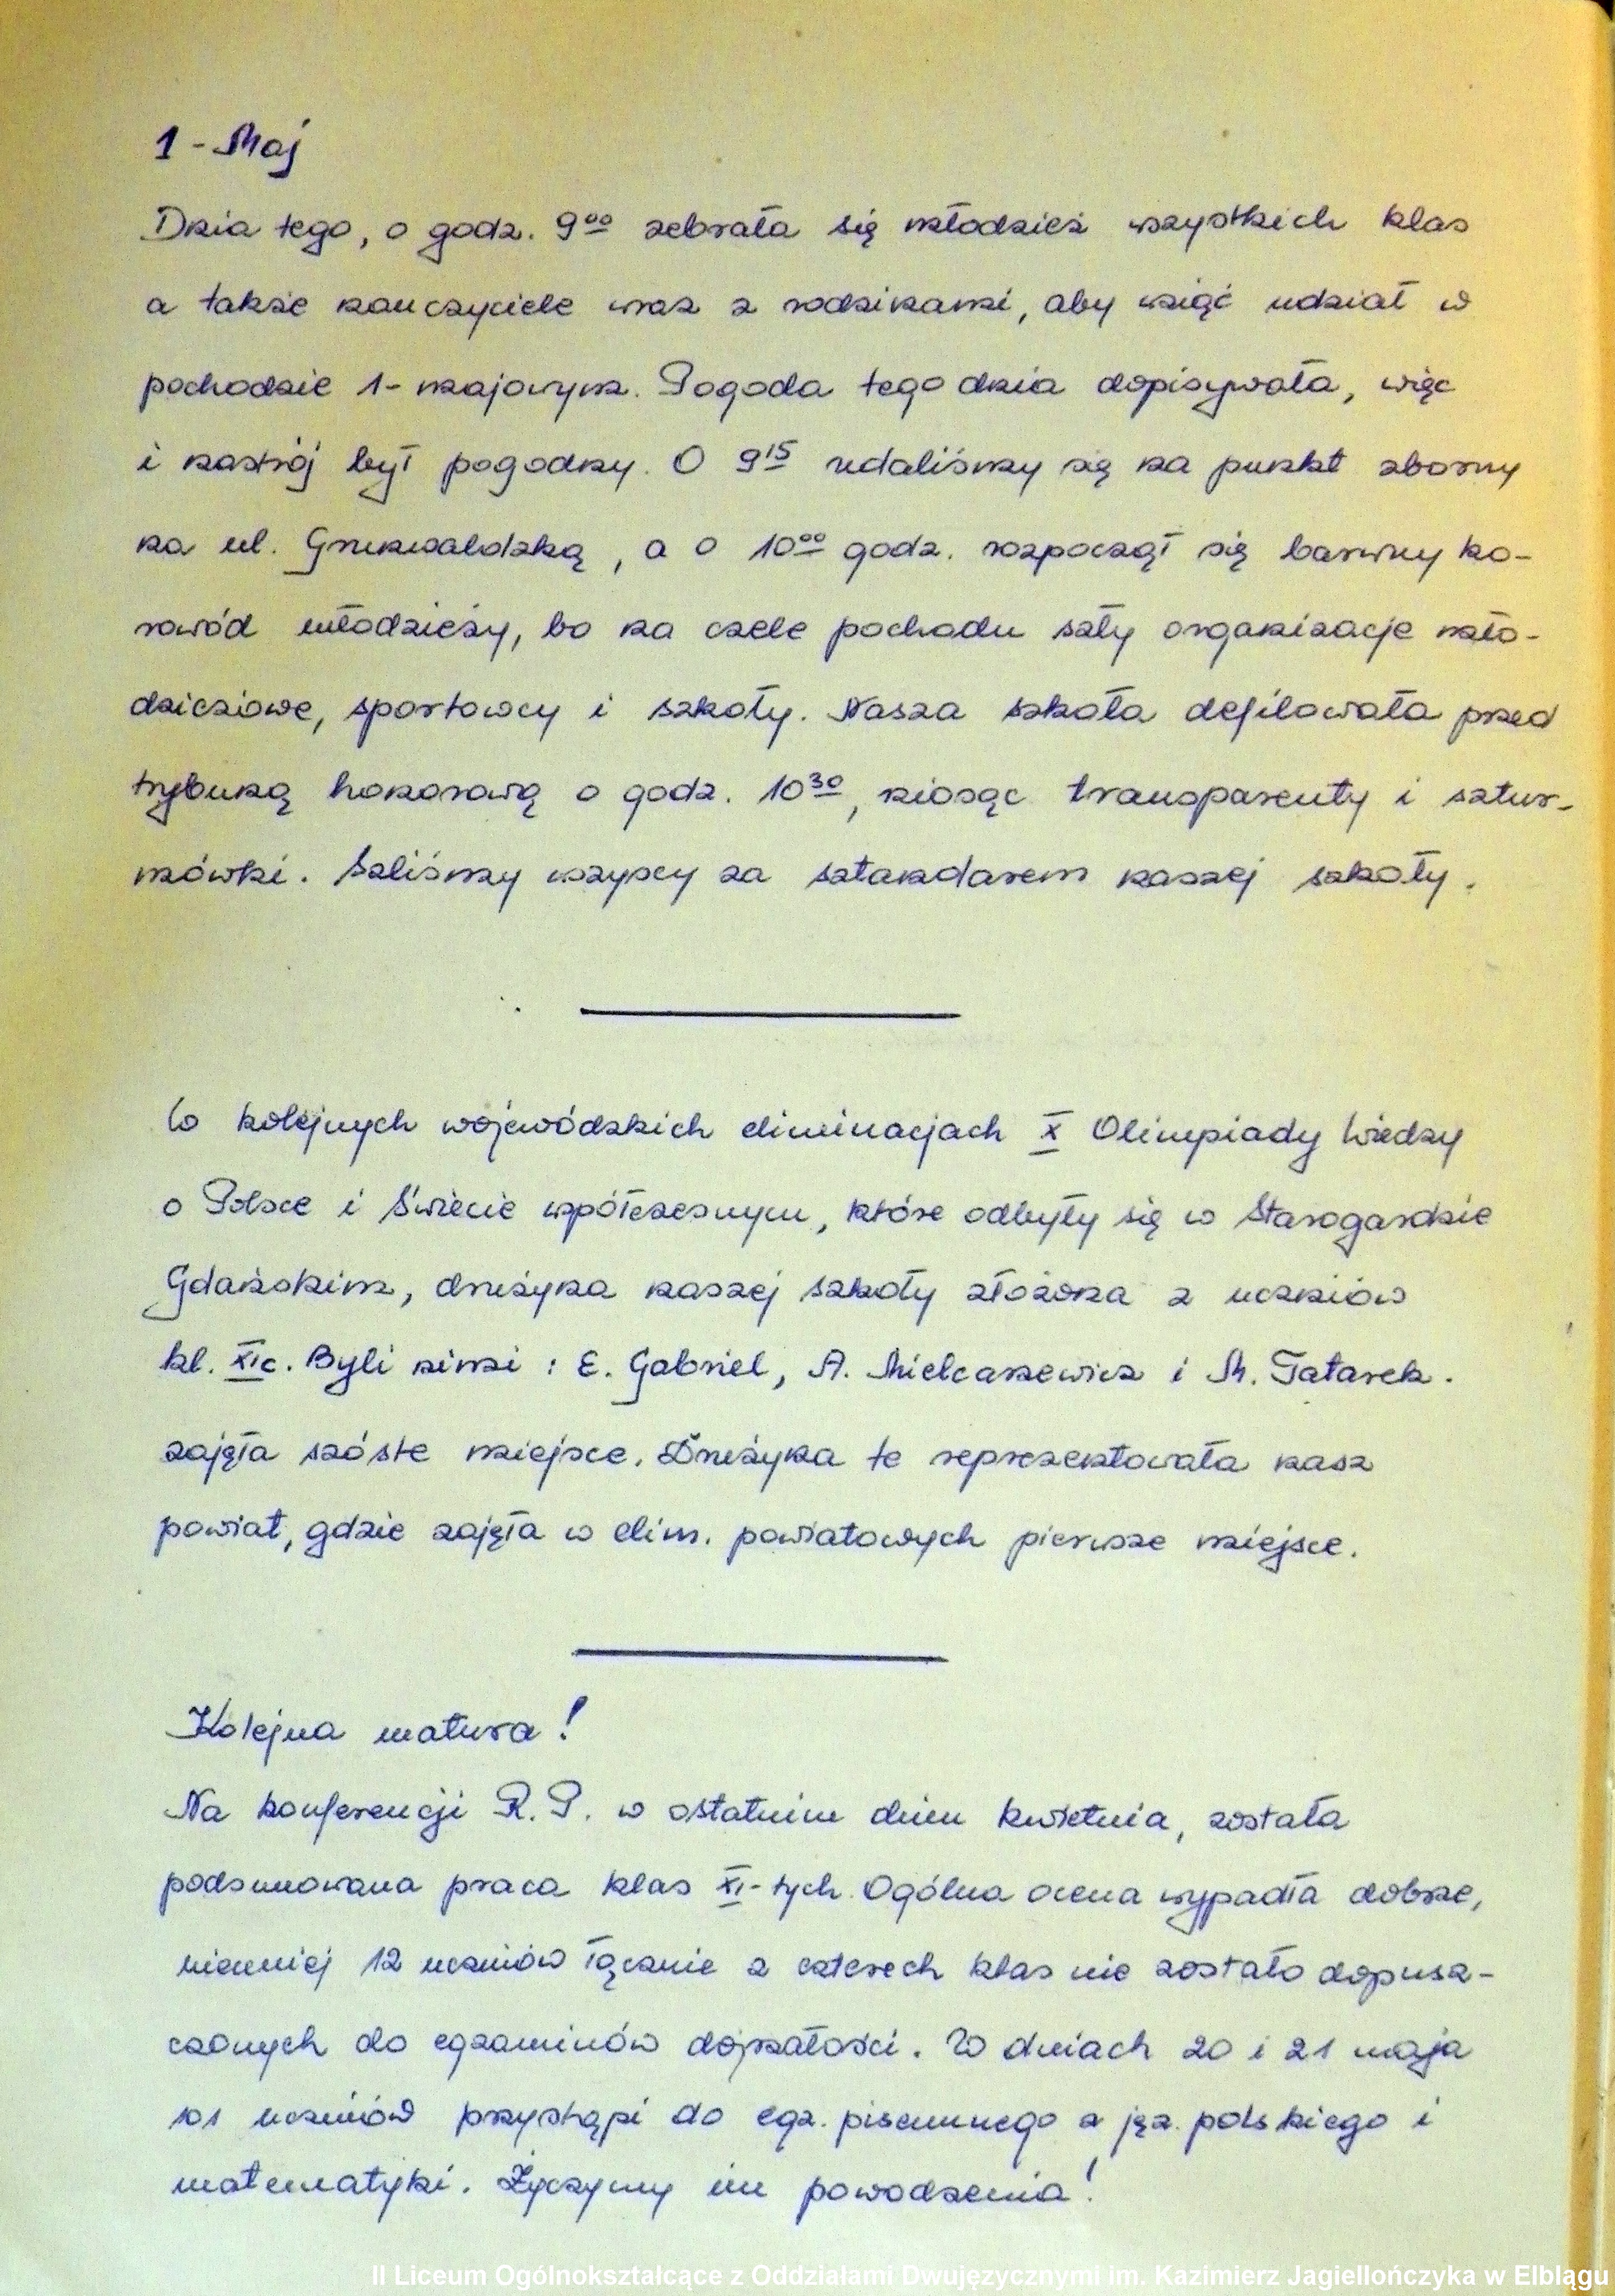 1 - Maj
Dnia tego, o godz. 9⁰⁰ zebrała się młodzież wszystkich klas
a także nauczyciele wraz z rodzinami, aby wziąć udział w
pochodzie 1-majowym. Pogoda tego dnia dopisywała, więc
i nastrój był pogodny. O 9¹⁵ udaliśmy się na punkt zborny
na ul. Grunwaldzką, a o 10⁰⁰ godz. rozpoczął się barwny ko-
rowód młodzieży, bo na czele pochodu szły organizacje mło-
dzieżowe, sportowcy i szkoły. Nasza szkoła defilowała przed
trybuną honorową o godz. 10³⁰, niosąc transparenty i sztur-
mówki. Szliśmy wszyscy za sztandarem naszej szkoły.
W kolejnych wojewódzkich eliminacjach X Olimpiady Wiedzy
o Polsce i Świecie współczesnym, które odbyły się w Starogardzie
Gdańskim, drużyna naszej szkoły złożona z uczniów
kl. XIc. Byli nimi: E. Gabriel, A. Mielcarzewicz i M. Tatarek.
zajęła szóste miejsce. Drużyna te reprezentowała nasz
powiat, gdzie zajęła w elim. powiatowych pierwsze miejsce.
Kolejna matura!
Na konferencji R.P. w ostatnim dniu kwietnia, została
podsumowana praca klas XI-tych. Ogólna ocena wypadła dobrze,
niemniej 12 uczniów łącznie z czterech klas nie zostało dopusz-
czonych do egzaminów dojrzałości. W dniach 20 i 21 maja
101 uczniów przystąpi do egz. pisemnego z jęz. polskiego i
matematyki. Życzymy im powodzenia!
II Liceum Ogólnokształcące z Oddziałami Dwujęzycznymi im. Kazimierz Jagiellończyka w Elblągu